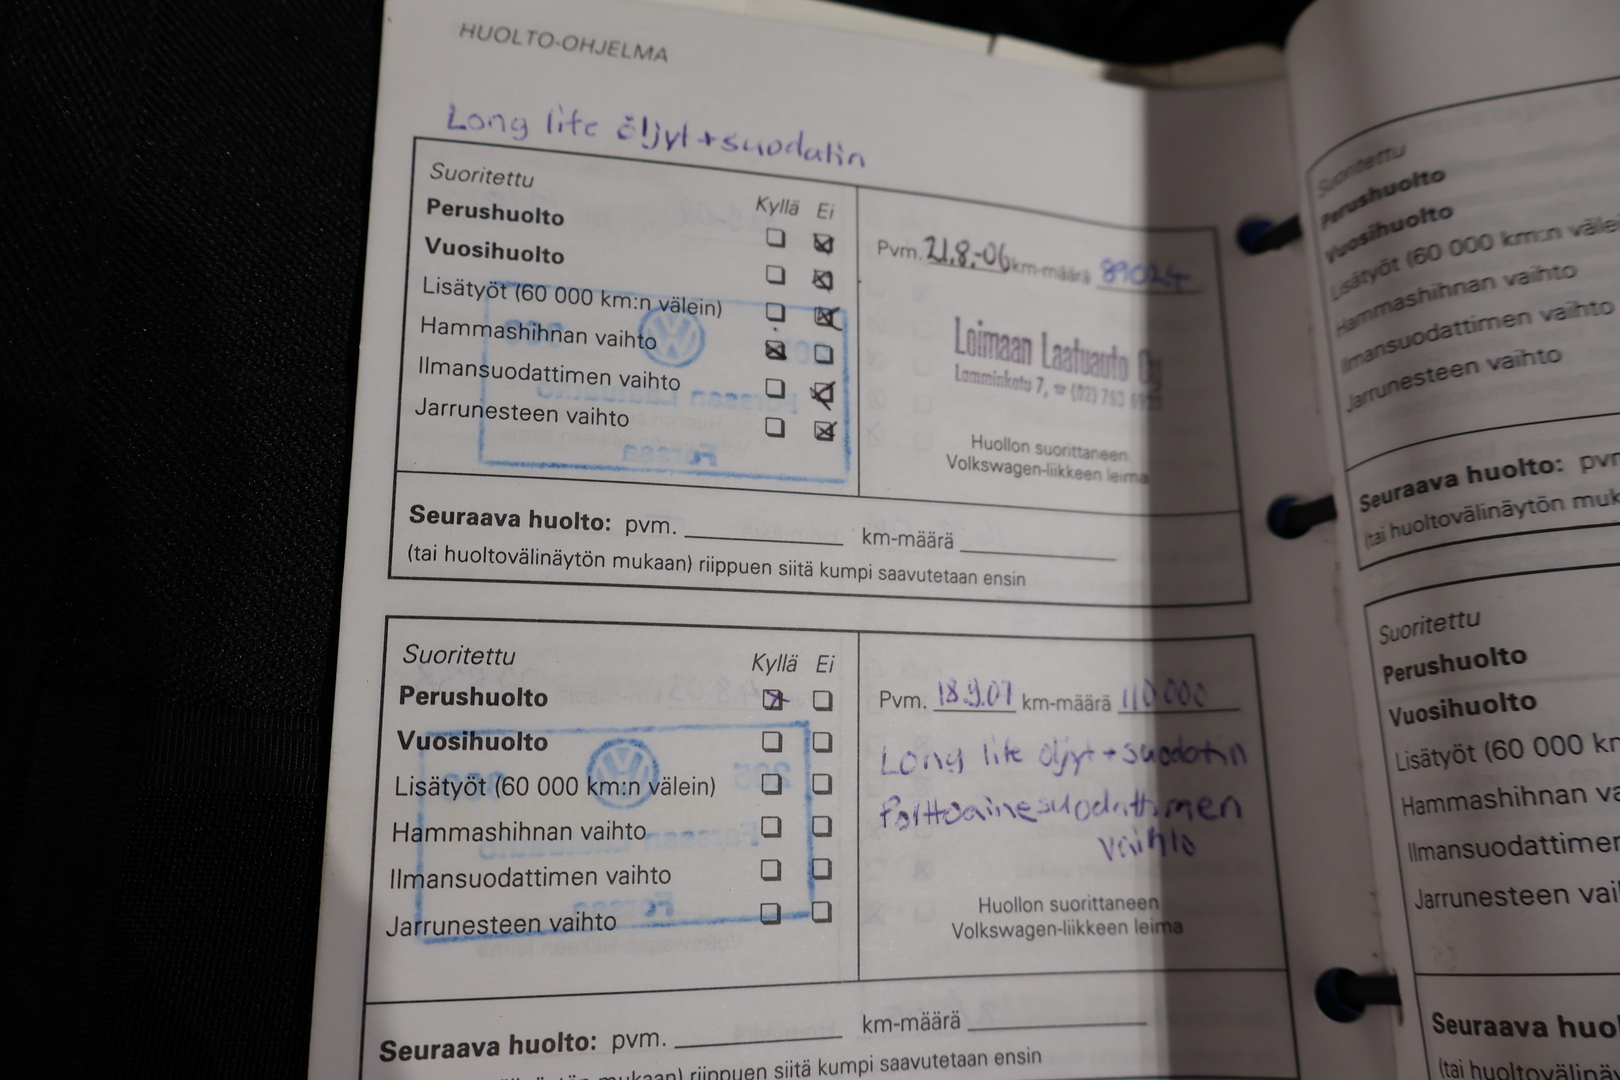 HUOLTO-OHJELMA
Long life öljyt + suodatin
Suoritettu
Kyllä Ei
Perushuolto
Vuosihuolto
Lisätyöt (60 000 km:n välein)
Hammashihnan vaihto
Ilmansuodattimen vaihto
Jarrunesteen vaihto
Pvm. 21.8.-06 km-määrä 89024
Loimaan Laatuauto Oy
Lamminkatu 7, ☎ (02) 763
Huollon suorittaneen
Volkswagen-liikkeen leima
Seuraava huolto: pvm. km-määrä
(tai huoltovälinäytön mukaan) riippuen siitä kumpi saavutetaan ensin
Suoritettu
Kyllä Ei
Perushuolto
Vuosihuolto
Lisätyöt (60 000 km:n välein)
Hammashihnan vaihto
Ilmansuodattimen vaihto
Jarrunesteen vaihto
Pvm. 18.9.07 km-määrä 110 000
Long life öljyt + suodatin
Polttoainesuodattimen
vaihto
Huollon suorittaneen
Volkswagen-liikkeen leima
Seuraava huolto: pvm. km-määrä
mukaan) riippuen siitä kumpi saavutetaan ensin
Suoritettu
Perushuolto
Vuosihuolto
Lisätyöt (60 000 km:n väle
Hammashihnan vaihto
Ilmansuodattimen vaihto
Jarrunesteen vaihto
Seuraava huolto: pvm
(tai huoltovälinäytön muk
Suoritettu
Perushuolto
Vuosihuolto
Lisätyöt (60 000 km
Hammashihnan va
Ilmansuodattimen
Jarrunesteen vai
Seuraava huo
(tai huoltovälinäy